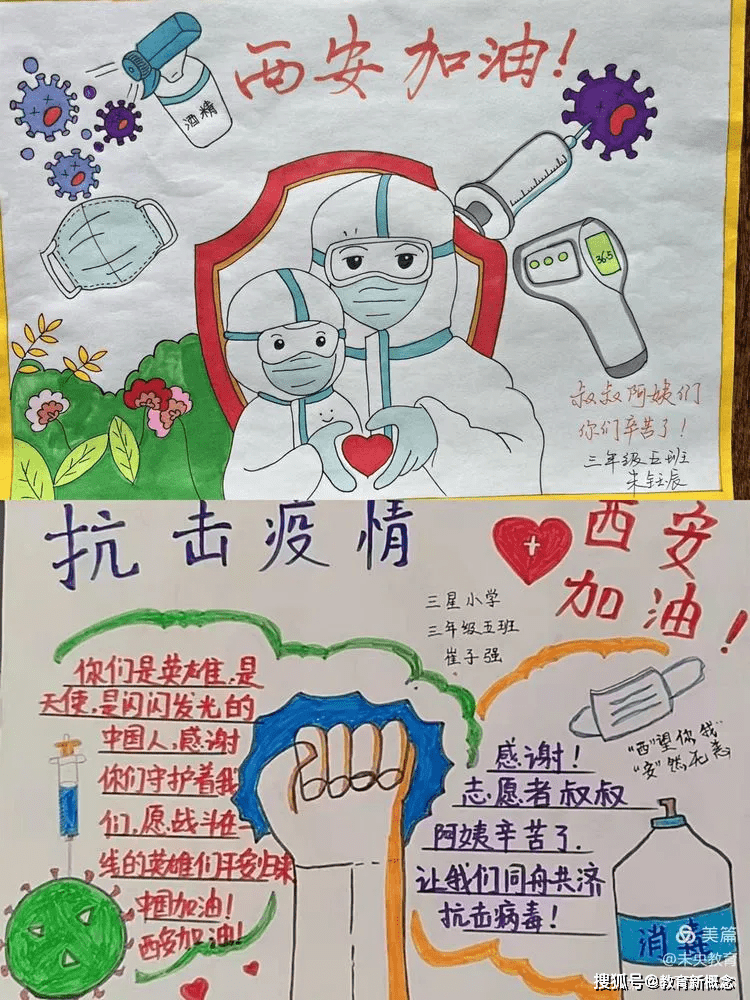 西安加油!
酒精
36.5
叔叔阿姨们
你们辛苦了!
三年级五班
朱钰辰
抗击疫情
西安
加油!
三星小学
三年级五班
崔子强
你们是英雄,是
天使,是闪闪发光的
中国人,感谢
你们守护着我
们,愿战斗在一
线的英雄们平安归来
中国加油!
西安加油!
"西"望你我"
"安"然无恙
感谢!
志愿者叔叔
阿姨辛苦了.
让我们同舟共济
抗击病毒!
消毒
美篇
@未央教育
搜狐号@教育新概念